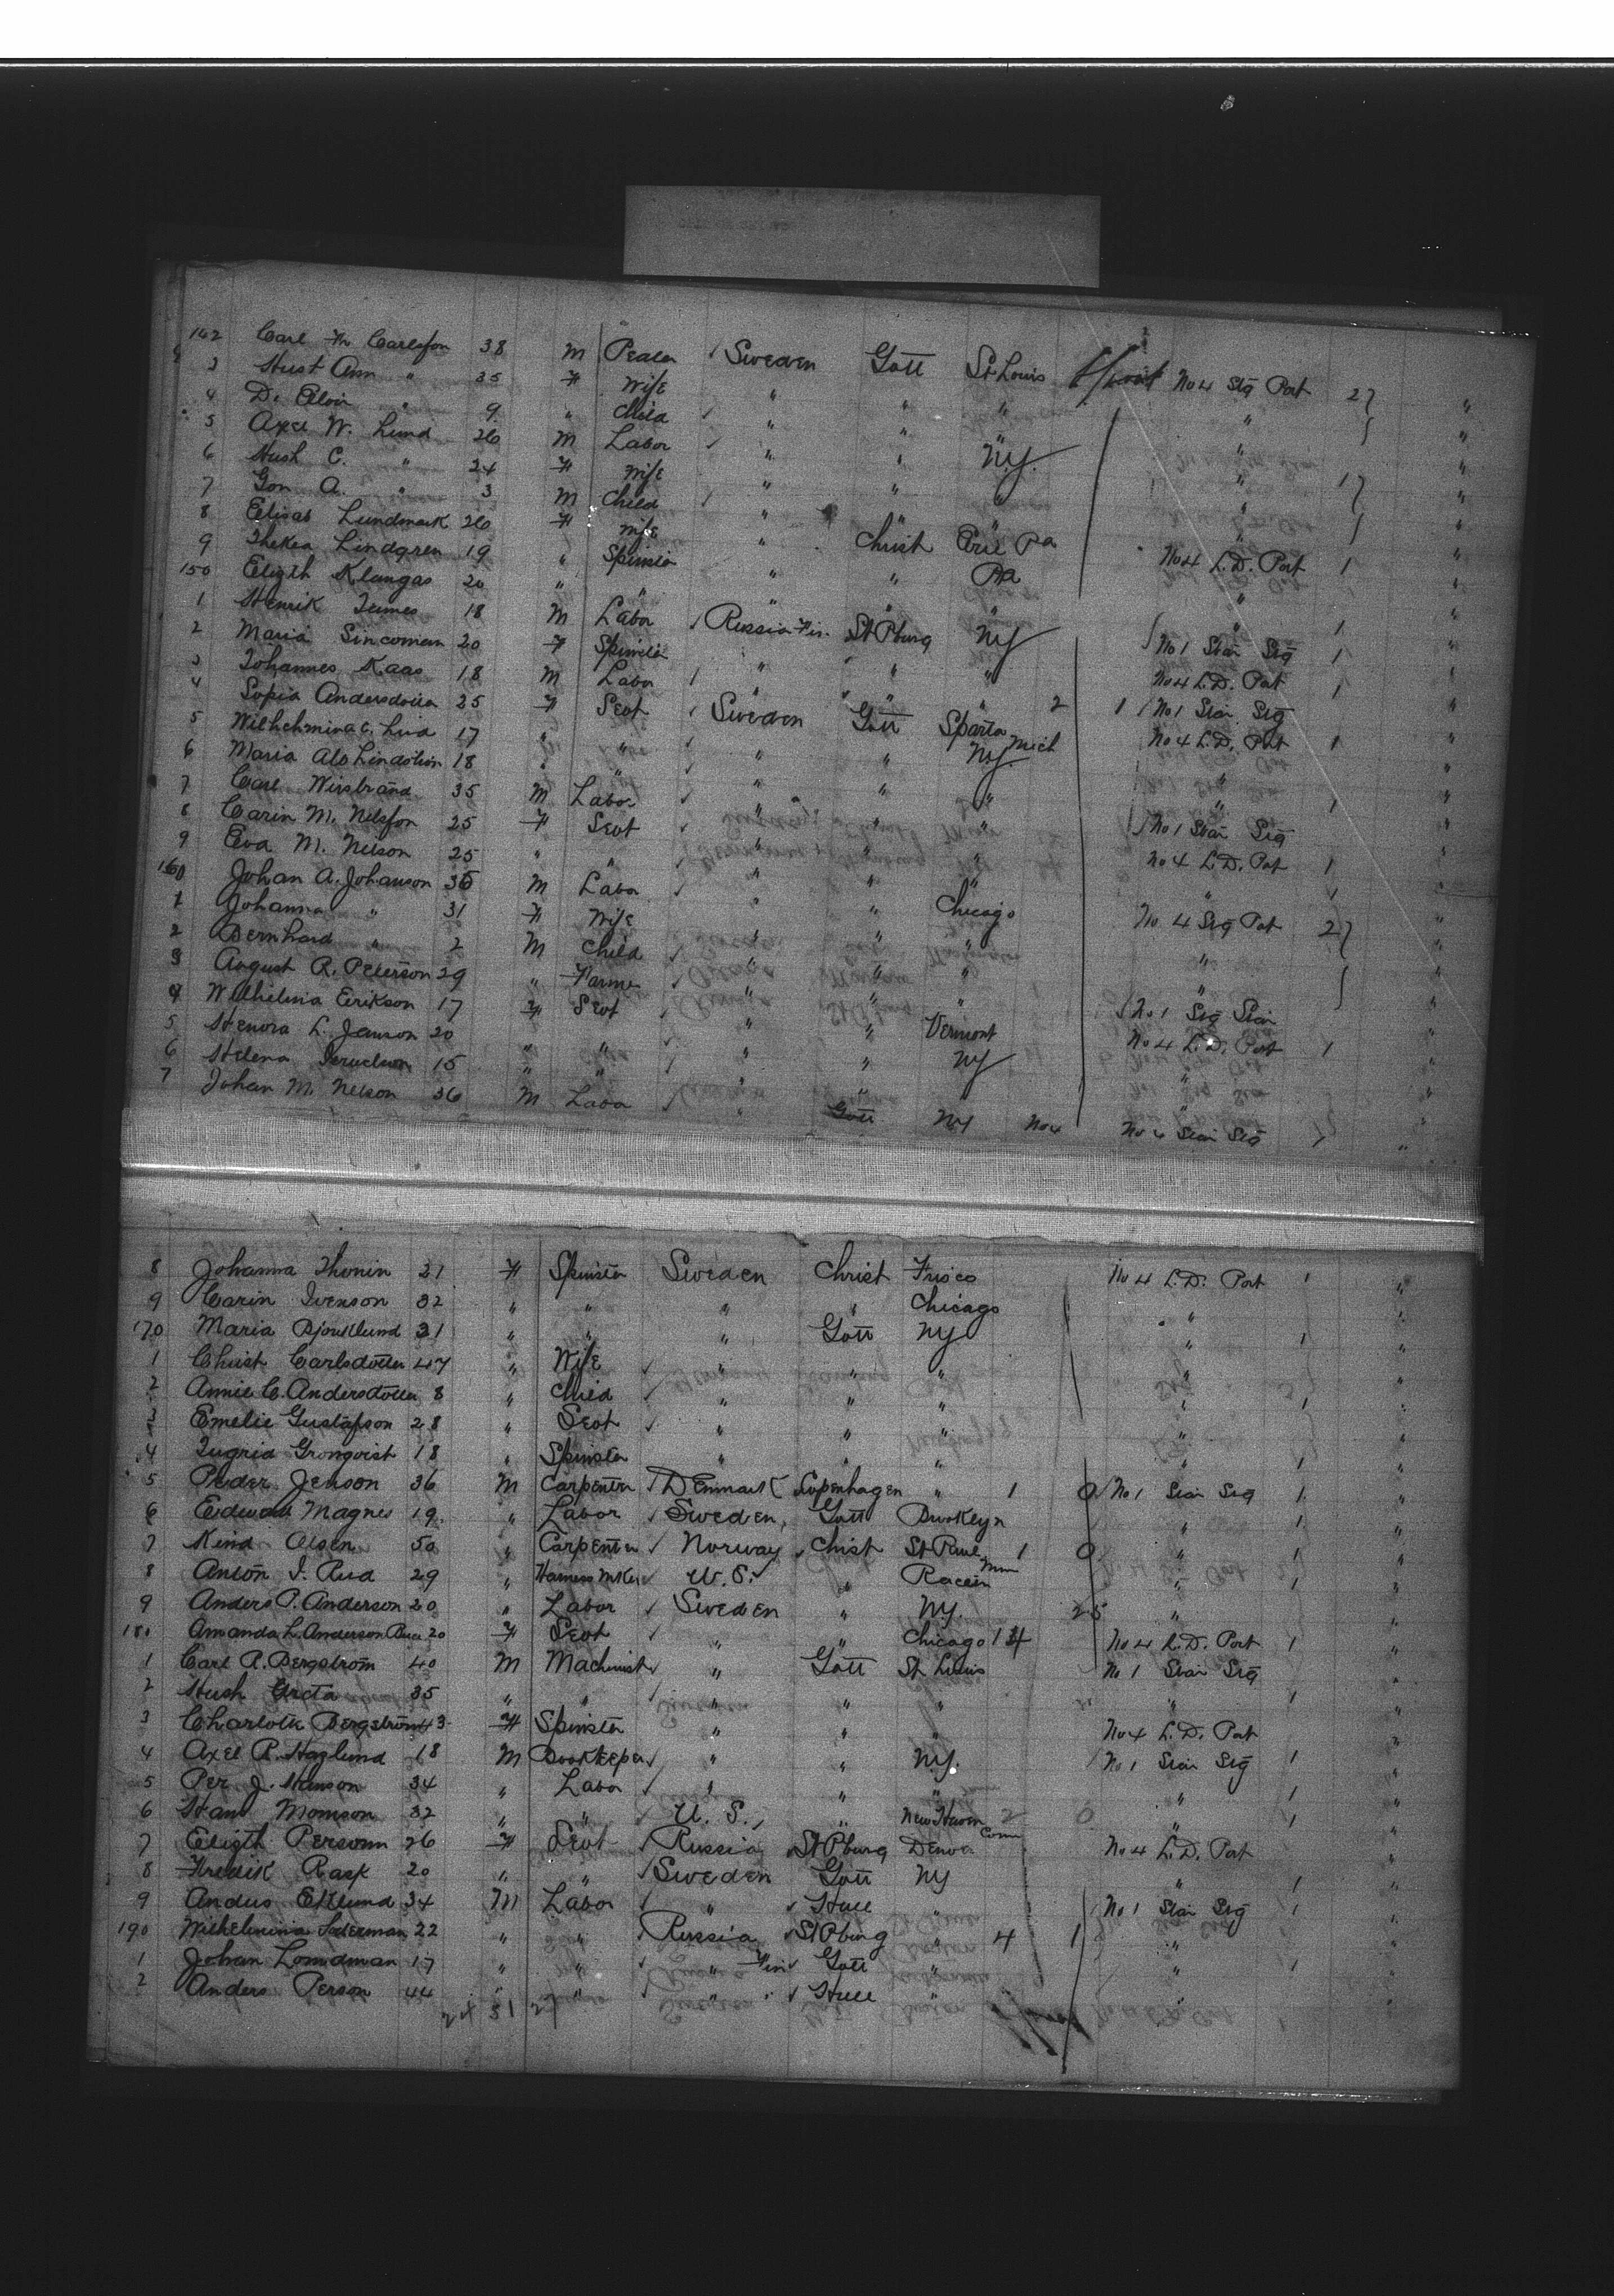 142 Carl Fr Carlsson 38 M Pealer Sweden Gott St Louis No 4 Stg Port 2 "
3 Hust Ann " 35 F Wife " " " " "
4 D. Elvir " 9 " Child " " " " "
5 Axel W. Lund 26 M Labor " " N.Y. "
6 Hush C. " 24 F Wife " " " " 1 "
7 Gon A. " 3 M Child " " " "
8 Elisab Lundmark 26 F Wife " Christ Erie Pa "
9 Thekla Lindgren 19 " Spinster " " Pa No 4 L.D. Port 1 "
150 Elizth Klangas 20 " " " " " " "
1 Henrik James 18 M Labor Russia Fin. St Pburg NY No 1 Stair Stg 1 "
2 Maria Sincoman 20 F Spinster " " " No 4 L.D. Port 1 "
3 Johannes Kaas 18 M Labor " " " 2 1 No 1 Stair Stg 1 "
4 Sopia Andersdotter 25 F Sevt Sweden Gott Sparta Mich No 4 L.D. Port 1 "
5 Wilhelmina C. Lind 17 " " " " N.Y. " "
6 Maria Alb Lindstrom 18 " " " " " " 1 "
7 Carl Wirsbrand 35 M Labor " " " No 1 Stair Stg "
8 Carin M. Nelsson 25 F Sevt " " " No 4 L.D. Port 1 "
9 Eva M. Nelson 25 " " " " " " 1 "
160 Johan A. Johanson 36 M Labor " " Chicago No 4 Stg Port 2 "
1 Johanna " 31 F Wife " " " " "
2 Bernhard " 2 M Child " " " " "
3 August R. Peterson 29 " Farmer " " " No 1 Stg Stair "
4 Wilhelmina Erikson 17 F Sevt " " Vermont No 4 L.D. Port 1 "
5 Henora L. Janson 20 " " " " NY " "
6 Helena 15 " " " "
7 Johan M. Nelson 36 M Labor " Gott NY No 4 No 4 Stair Stg 1 "
8 Johanna Thonin 31 F Spinster Sweden Christ Frisco No 4 L.D. Port 1 "
9 Carin Ivenson 32 " " " " Chicago " "
170 Maria Bjorklund 31 " " " Gott NY " 1 "
1 Christ Carlsdotter 47 " Wife " " " " "
2 Annie C. Andersdotter 8 " Child " " " " 1 "
3 Emelie Gustafson 28 " Sevt " " " " "
4 Ingrid Gronqvist 18 " Spinster " " " " 1 "
5 Peder Jenson 36 M Carpenter Denmark Copenhagen " 1 0 No 1 Stair Stg 1 "
6 Edward Magnes 19 " Labor Sweden Gott Brooklyn " 1 "
7 Kind Olsen 50 " Carpenter Norway Christ St Paul Minn 1 0 " 1 "
8 Anton I. Rud 29 " Harness Mker U.S. " Racein " 1 "
9 Anders P. Anderson 20 " Labor Sweden " NY. 25 " "
180 Amanda L. Anderson 20 F Sevt " " Chicago No 4 L.D. Port 1 "
1 Carl R. Bergstrom 40 M Machinist " Gott St Louis No 1 Stair Stg "
2 Hush Greta 35 " " " " " " 1 "
3 Charlotte Bergstrom 43 F Spinster " " " No 4 L.D. Port "
4 Axel R. Haglund 18 M Bookkeeper " " NY. No 1 Stair Stg 1 "
5 Per J. Hanson 34 " Labor " " " " 1 "
6 Hans Monson 32 " " U.S. " New Haven Conn 2 0 " 1 "
7 Elizth Personn 26 F Sevt Russia St Pburg Denver No 4 L.D. Port "
8 Fredik Rask 20 " " Sweden Gott NY " 1 "
9 Andus Eklund 34 M Labor " Hull " No 1 Stair Stg 1 "
190 Wilhelmina Soderman 22 " " Russia St Pburg " 4 1 " "
1 Johan 17 " " " Fin Gott " " 1 "
2 Anders Person 44 " " " Hull " " "
24 51 21